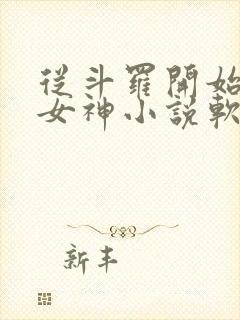 從斗羅開始
女神小説軟
新丰